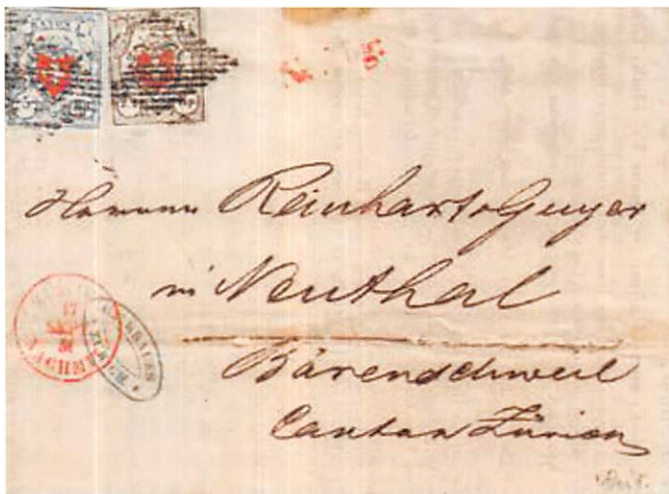 RAYON
Herren Reinhart & Guyer
in Neuthal
Bärenschweil
Canton Zürich
17
SEPT